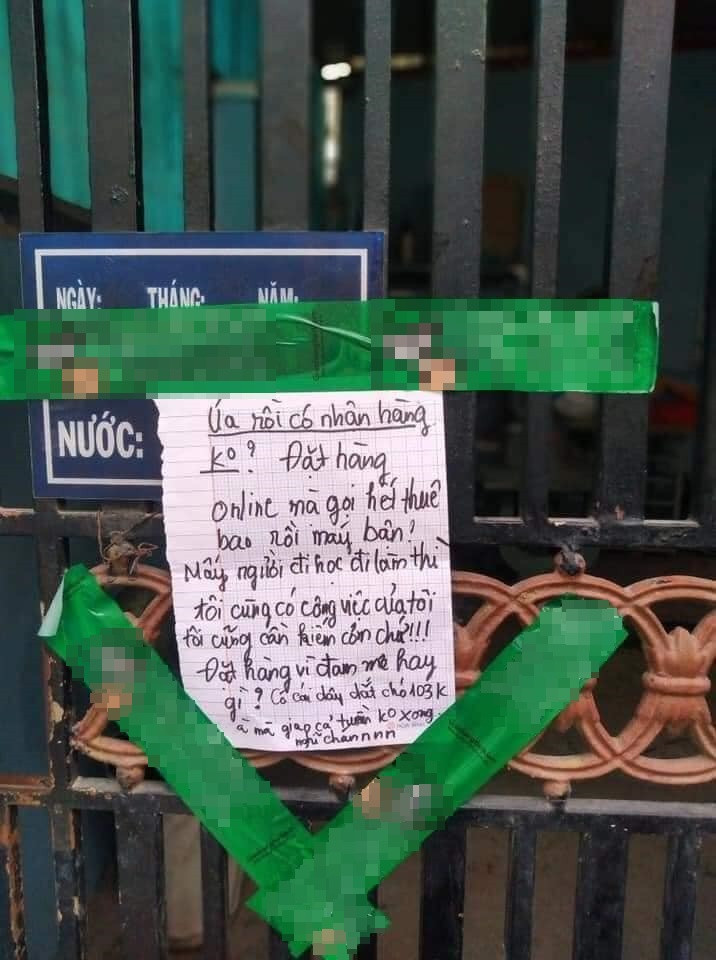 NGÀY: THÁNG: NĂM:
NƯỚC:
Ủa rồi có nhân hàng
ko? Đặt hàng
online mà gọi hết thuê
bao rồi mấy bân?
Mấy người đi học đi làm thì
tôi cũng có công việc của tôi
tôi cũng cần kiếm cơm chứ!!!
Đặt hàng vì đam mê hay
gì? Có cái dây dắt chó 103K
à mà giao cả tuần ko xong
nghĩ chánnnn